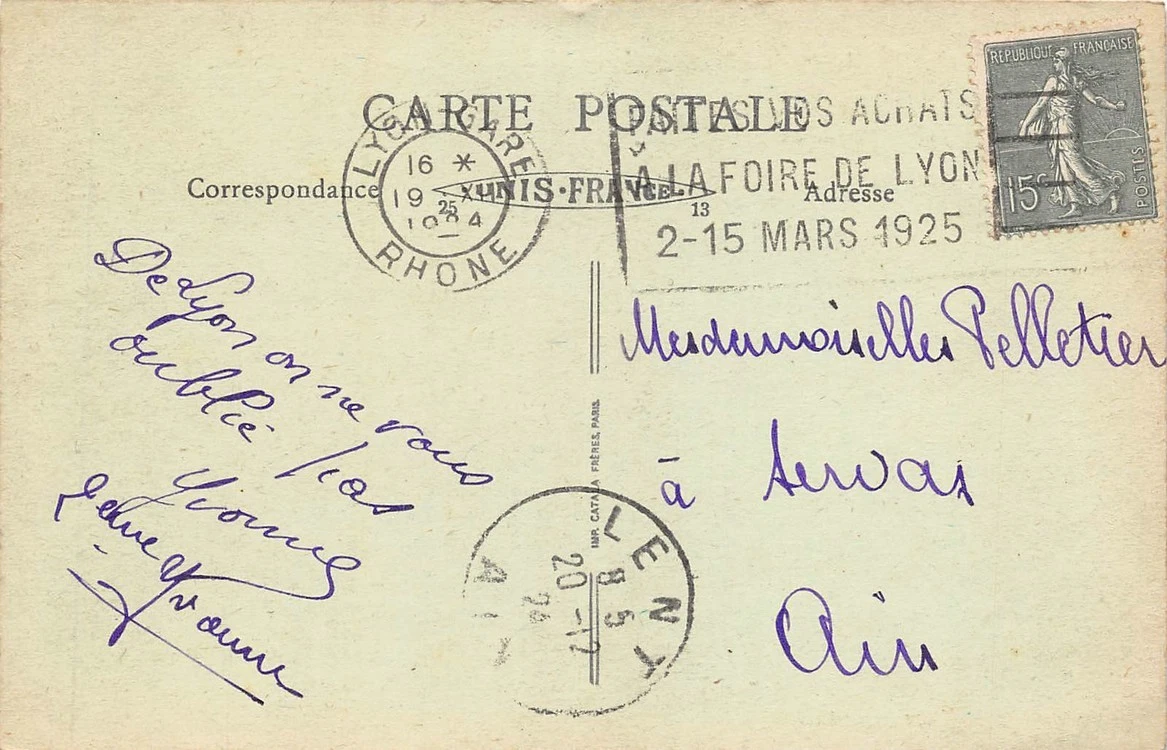 CARTE POSTALE
Correspondance
Adresse
UNIS-FRANCE
25
13
LYON-GARE
16 *
19 XII
1924
RHONE
FAITES VOS ACHATS
A LA FOIRE DE LYON
2-15 MARS 1925
REPUBLIQUE FRANÇAISE
15c
POSTES
De Lyon on ne vous
oublie pas
Yvonne
Yvonne
Mesdemoiselles Pelletier
à Servas
Ain
IMP. CATALA FRÈRES, PARIS.
LENT
8 5
20-12
24
AIN